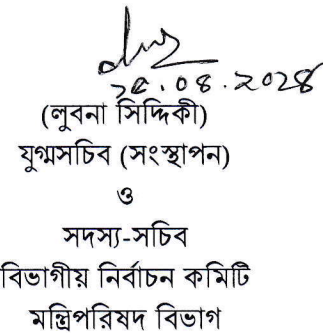 (লুবনা সিদ্দিকী)
যুগ্মসচিব (সংস্থাপন)
ও
সদস্য-সচিব
বিভাগীয় নির্বাচন কমিটি
মন্ত্রিপরিষদ বিভাগ